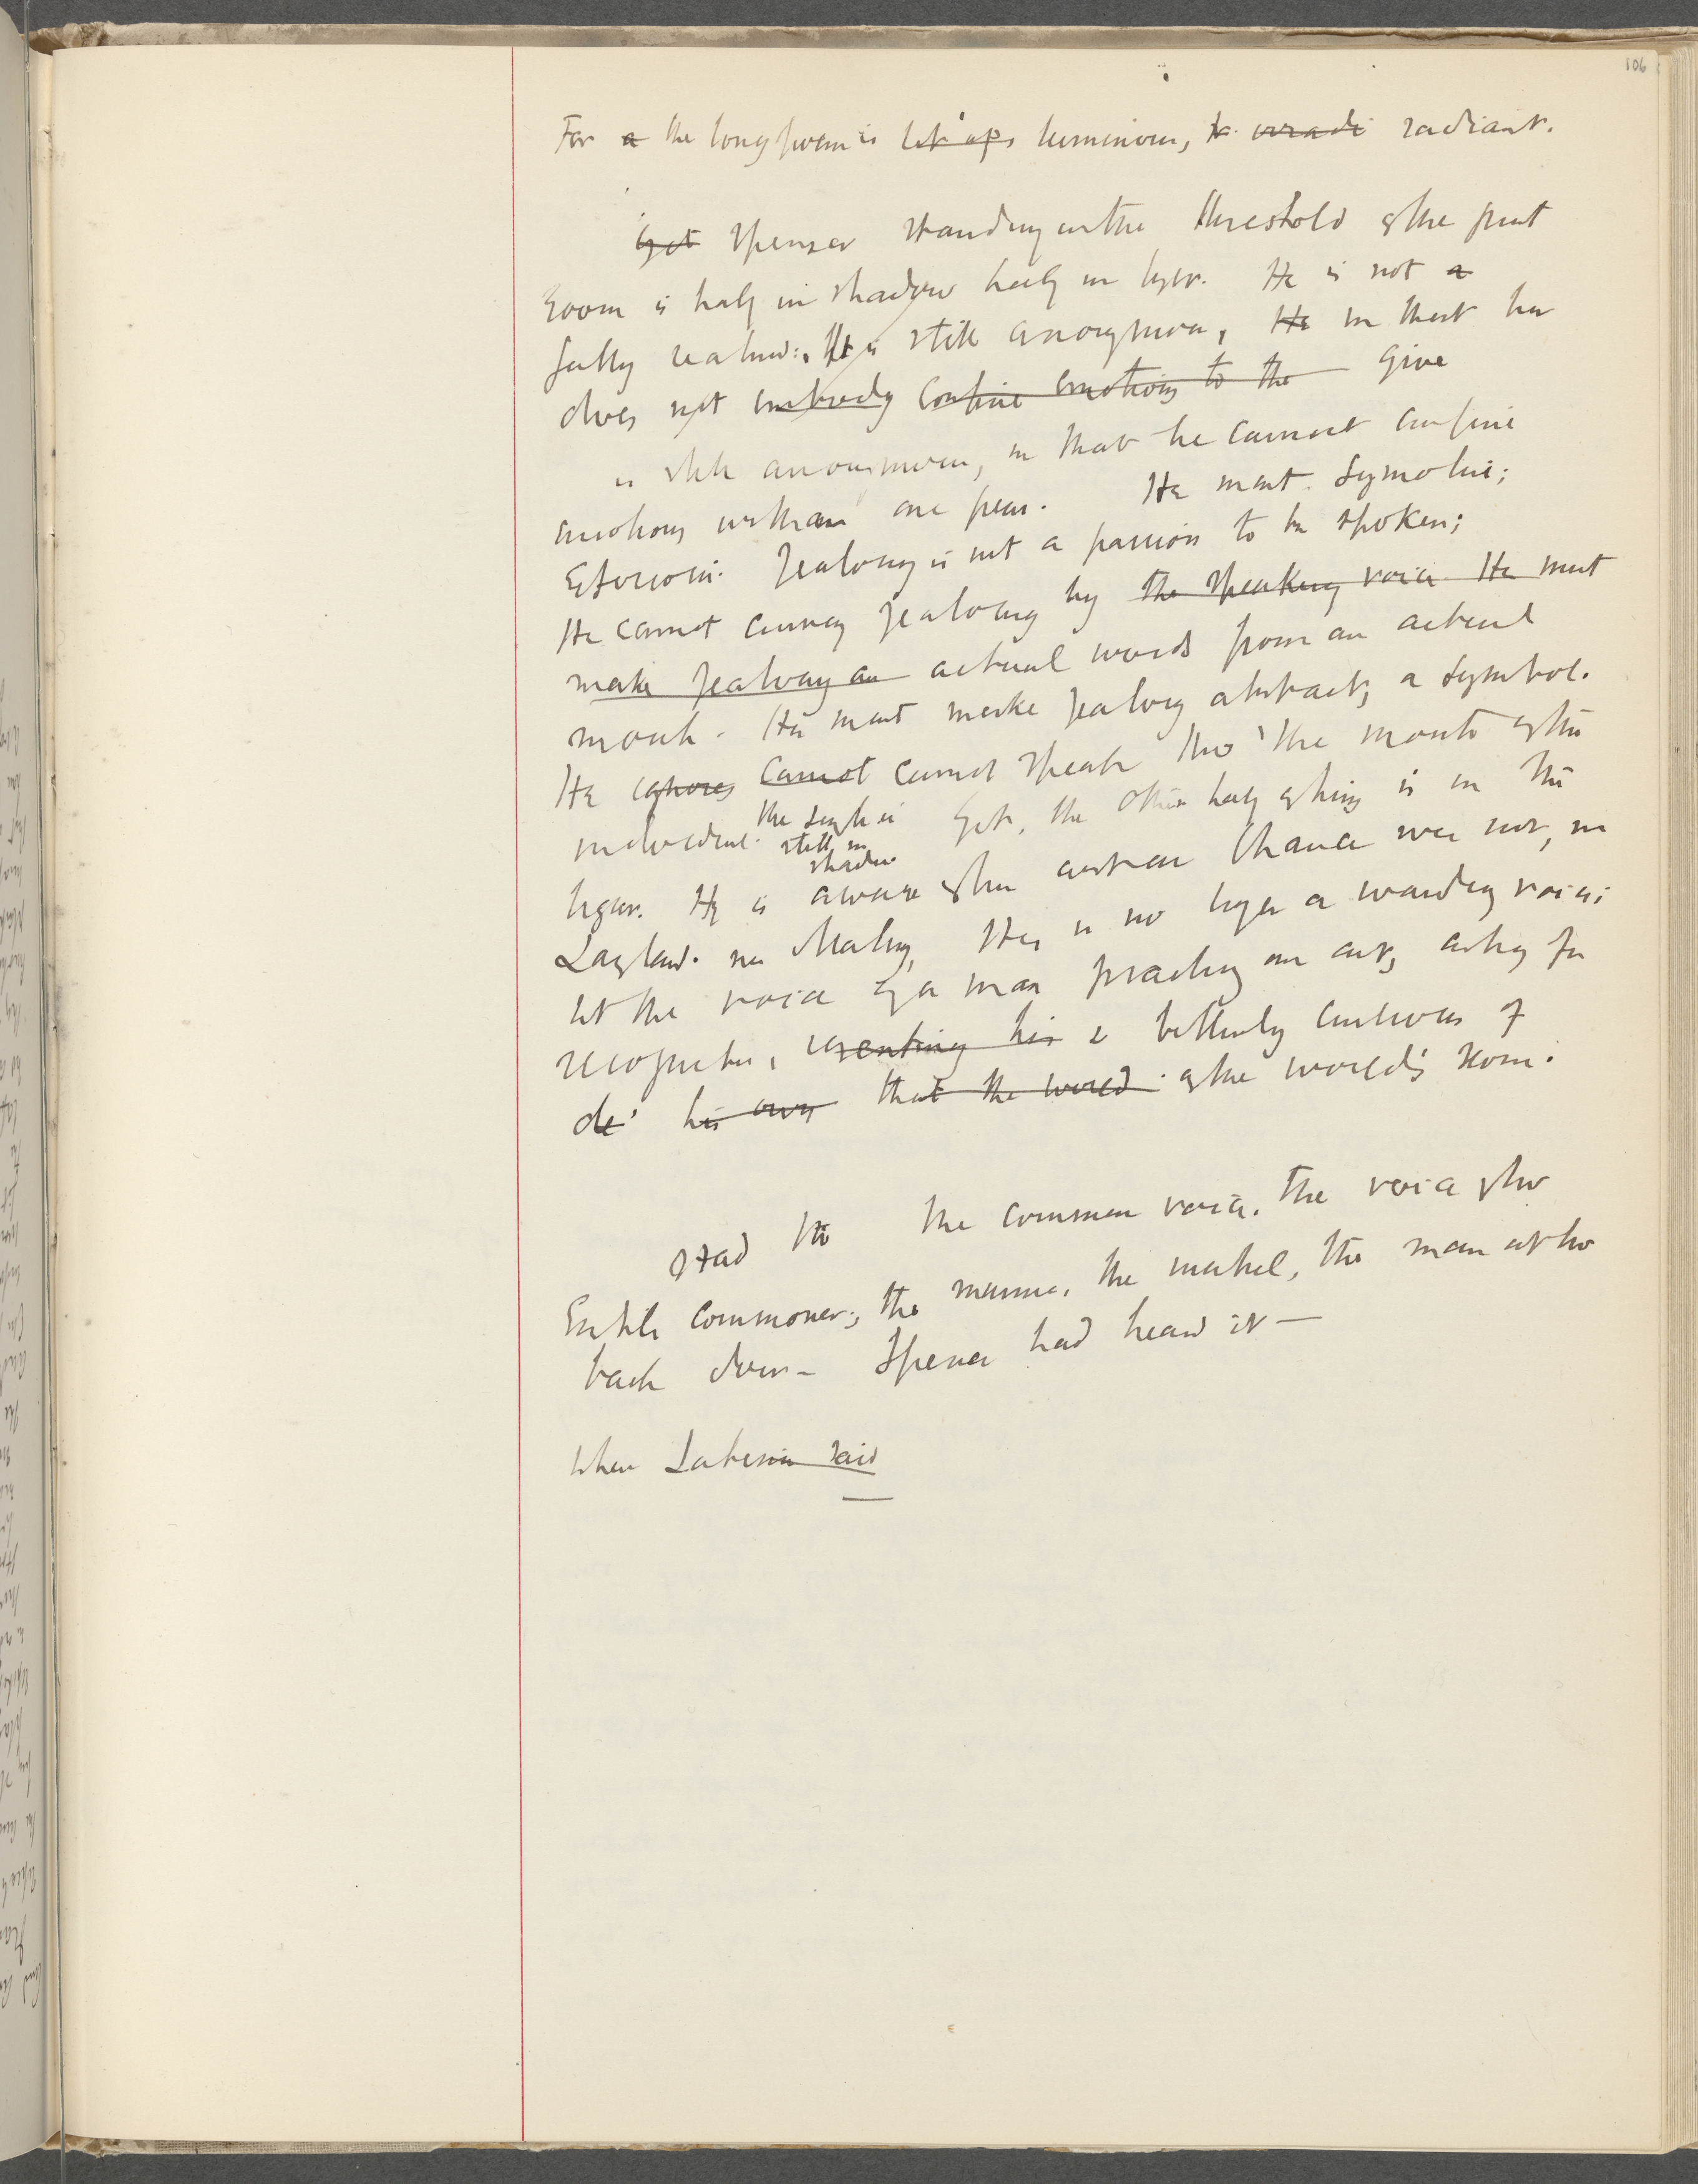 106
For a the long poem is lit up luminous, radiant.
Yet Spenser standing on the threshold of the great
room is half in shadow half in light. He is not a
fully realised: He is still anonymous, He in that he
does not embody confine emotions to the give
is still anonymous, in that he cannot confine
emotions within one person. He must symbolise;
exteriorise. Jealousy is not a passion to be spoken;
He cannot convey jealousy by the speaking voice He must
make jealousy an actual words from an actual
mouth. He must make jealousy abstract, a symbol.
He ignores cannot cannot speak thro' the mouth of the
individual. the single is still in shadow Yet, the other half of him is in the
light. He is aware of his art as Chaucer was not, nor
Langland. nor Malory. His is no longer a wandering voice;
but the voice of a man practising an art, asking for
recognition, resenting his & bitterly conscious of
de his own that the world of the world's scorn.
Had the the common voice. the voice of the
Exhil commoner; the mummer. the minstrel, the man at the
back door— Spenser had heard it —
When said